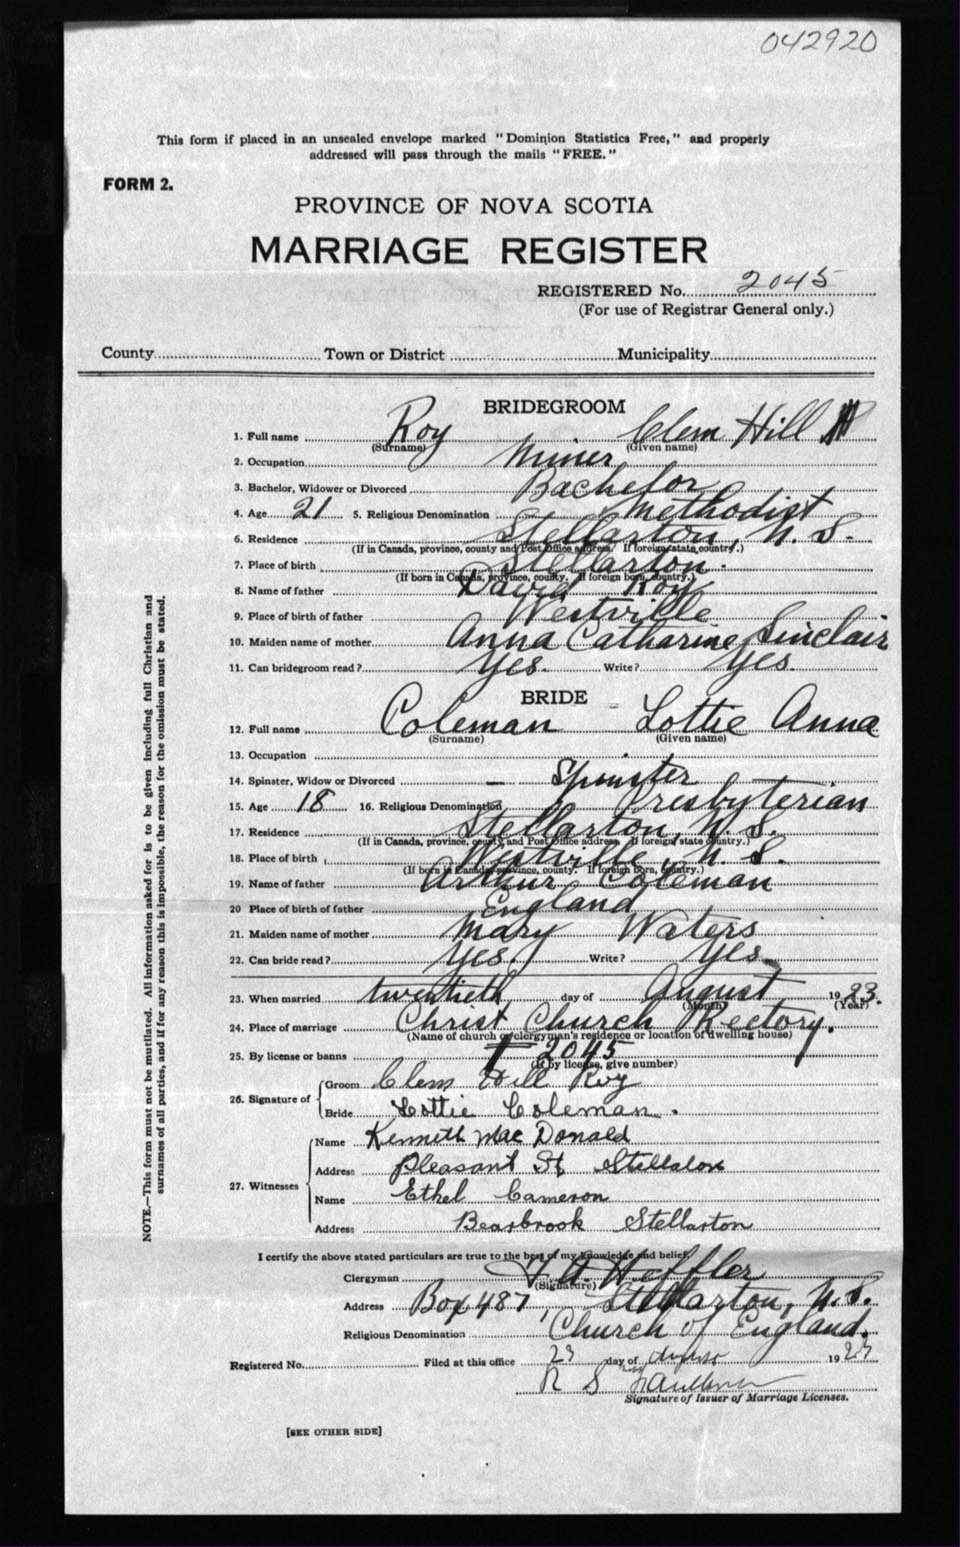 042920
This form if placed in an unsealed envelope marked "Dominion Statistics Free," and properly
addressed will pass through the mails "FREE."
FORM 2.
PROVINCE OF NOVA SCOTIA
MARRIAGE REGISTER
REGISTERED No. 2045
(For use of Registrar General only.)
County Town or District Municipality
BRIDEGROOM
1. Full name Roy Clem Hill
(Surname) (Given name)
2. Occupation Miner
3. Bachelor, Widower or Divorced Bachelor
4. Age 21 5. Religious Denomination Methodist
6. Residence Stellarton, N. S.
(If in Canada, province, county and Post Office address. If foreign state country.)
7. Place of birth Stellarton.
(If born in Canada, province, county. If foreign born, country.)
8. Name of father David Roy
9. Place of birth of father Westville
10. Maiden name of mother Anna Catharine Sinclair
11. Can bridegroom read? Yes. Write? Yes.
BRIDE
12. Full name Coleman Lottie Anna
(Surname) (Given name)
13. Occupation
14. Spinster, Widow or Divorced Spinster
15. Age 18 16. Religious Denomination Presbyterian
17. Residence Stellarton, N. S.
(If in Canada, province, county and Post Office address. If foreign state country.)
18. Place of birth Westville, N. S.
(If born in Canada, province, county. If foreign born, country.)
19. Name of father Arthur Coleman
20 Place of birth of father England
21. Maiden name of mother Mary Waters
22. Can bride read? Yes. Write? Yes.
23. When married twentieth day of August 1923.
(Month) (Year)
24. Place of marriage Christ Church Rectory.
(Name of church or clergyman's residence or location of dwelling house)
25. By license or banns 2045
(If by license, give number)
26. Signature of Groom Clem Hill Roy
Bride Lottie Coleman.
27. Witnesses Name Kenneth MacDonald
Address Pleasant St Stellaton
Name Ethel Cameron
Address Bearbrook Stellarton
I certify the above stated particulars are true to the best of my knowledge and belief.
Clergyman Heffler
(Signature)
Address Box 487, Stellarton, N. S.
Religious Denomination Church of England.
Registered No. Filed at this office 23 day of 1923
R S Faulkner
Signature of Issuer of Marriage Licenses.
[SEE OTHER SIDE]
NOTE.—This form must not be mutilated. All information asked for is to be given including full Christian and
surnames of all parties, and if for any reason this is impossible, the reason for the omission must be stated.